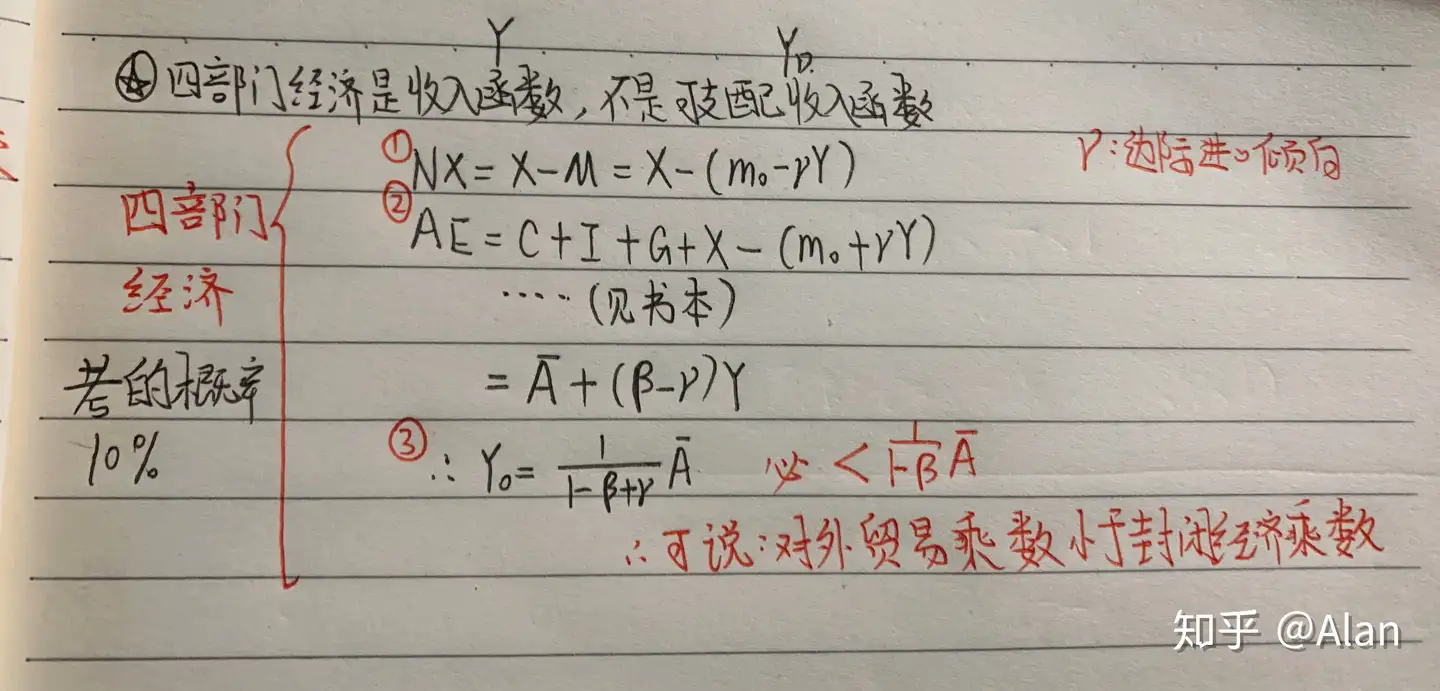 Y Y_D
④ 四部门经济是收入函数,不是可支配收入函数
四部门
经济
考的概率
10%
① NX = X-M = X-(m₀-γY)
γ:边际进口倾向
② AE = C+I+G+X-(m₀+γY)
····(见书本)
= Ā+(β-γ)Y
③ ∴ Y₀ = 1/(1-β+γ) Ā 必 < 1/(1-β) Ā
∴可说:对外贸易乘数小于封闭经济乘数
知乎 @Alan